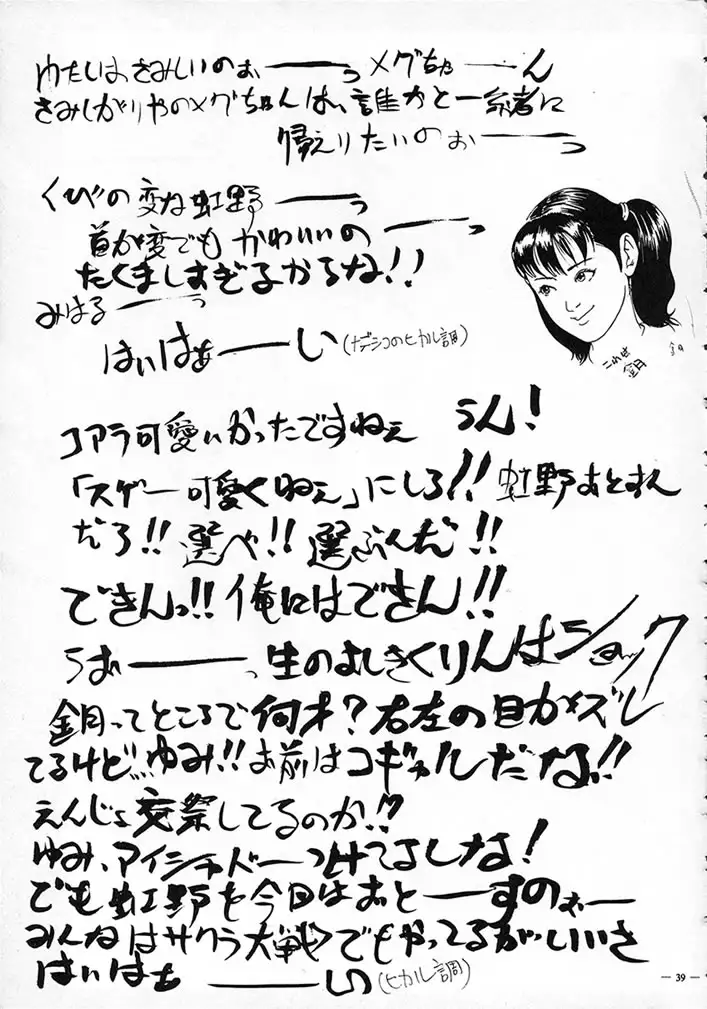 わたしはさみしいのぉーーっ メグちゃーーん
さみしがりやのメグちゃんは、誰かと一緒に
帰えりたいのぉーーっ
くびの変な虹野ーーっ
首が変でも かわいいのーーっ
たくましすぎるからな!!
みはるーーっ
はいはぁーーい(ナデシコのヒカル調)
これは
鏡
コアラ可愛いかったですねぇ うん!
「スゲー可愛くねぇ」にしろ!! 虹野おとすん
だろ!! 選べ!! 選ぶんだ!!
できんっ!! 俺にはできん!!
うおーーっ 生のよしきくりんはショック
ってところで何才? 右左の目がズレ
てるけど… ゆみ!! お前はコギャルだな!!
えんじょ交祭してるのか!?
ゆみ、アイシャドーつけてよしな!
でも虹野を今日はおとーーすのぉー
みんなはサクラ大戦でもやってるがいいさ
はいはぁーーい(ヒカル調)
— 39 —